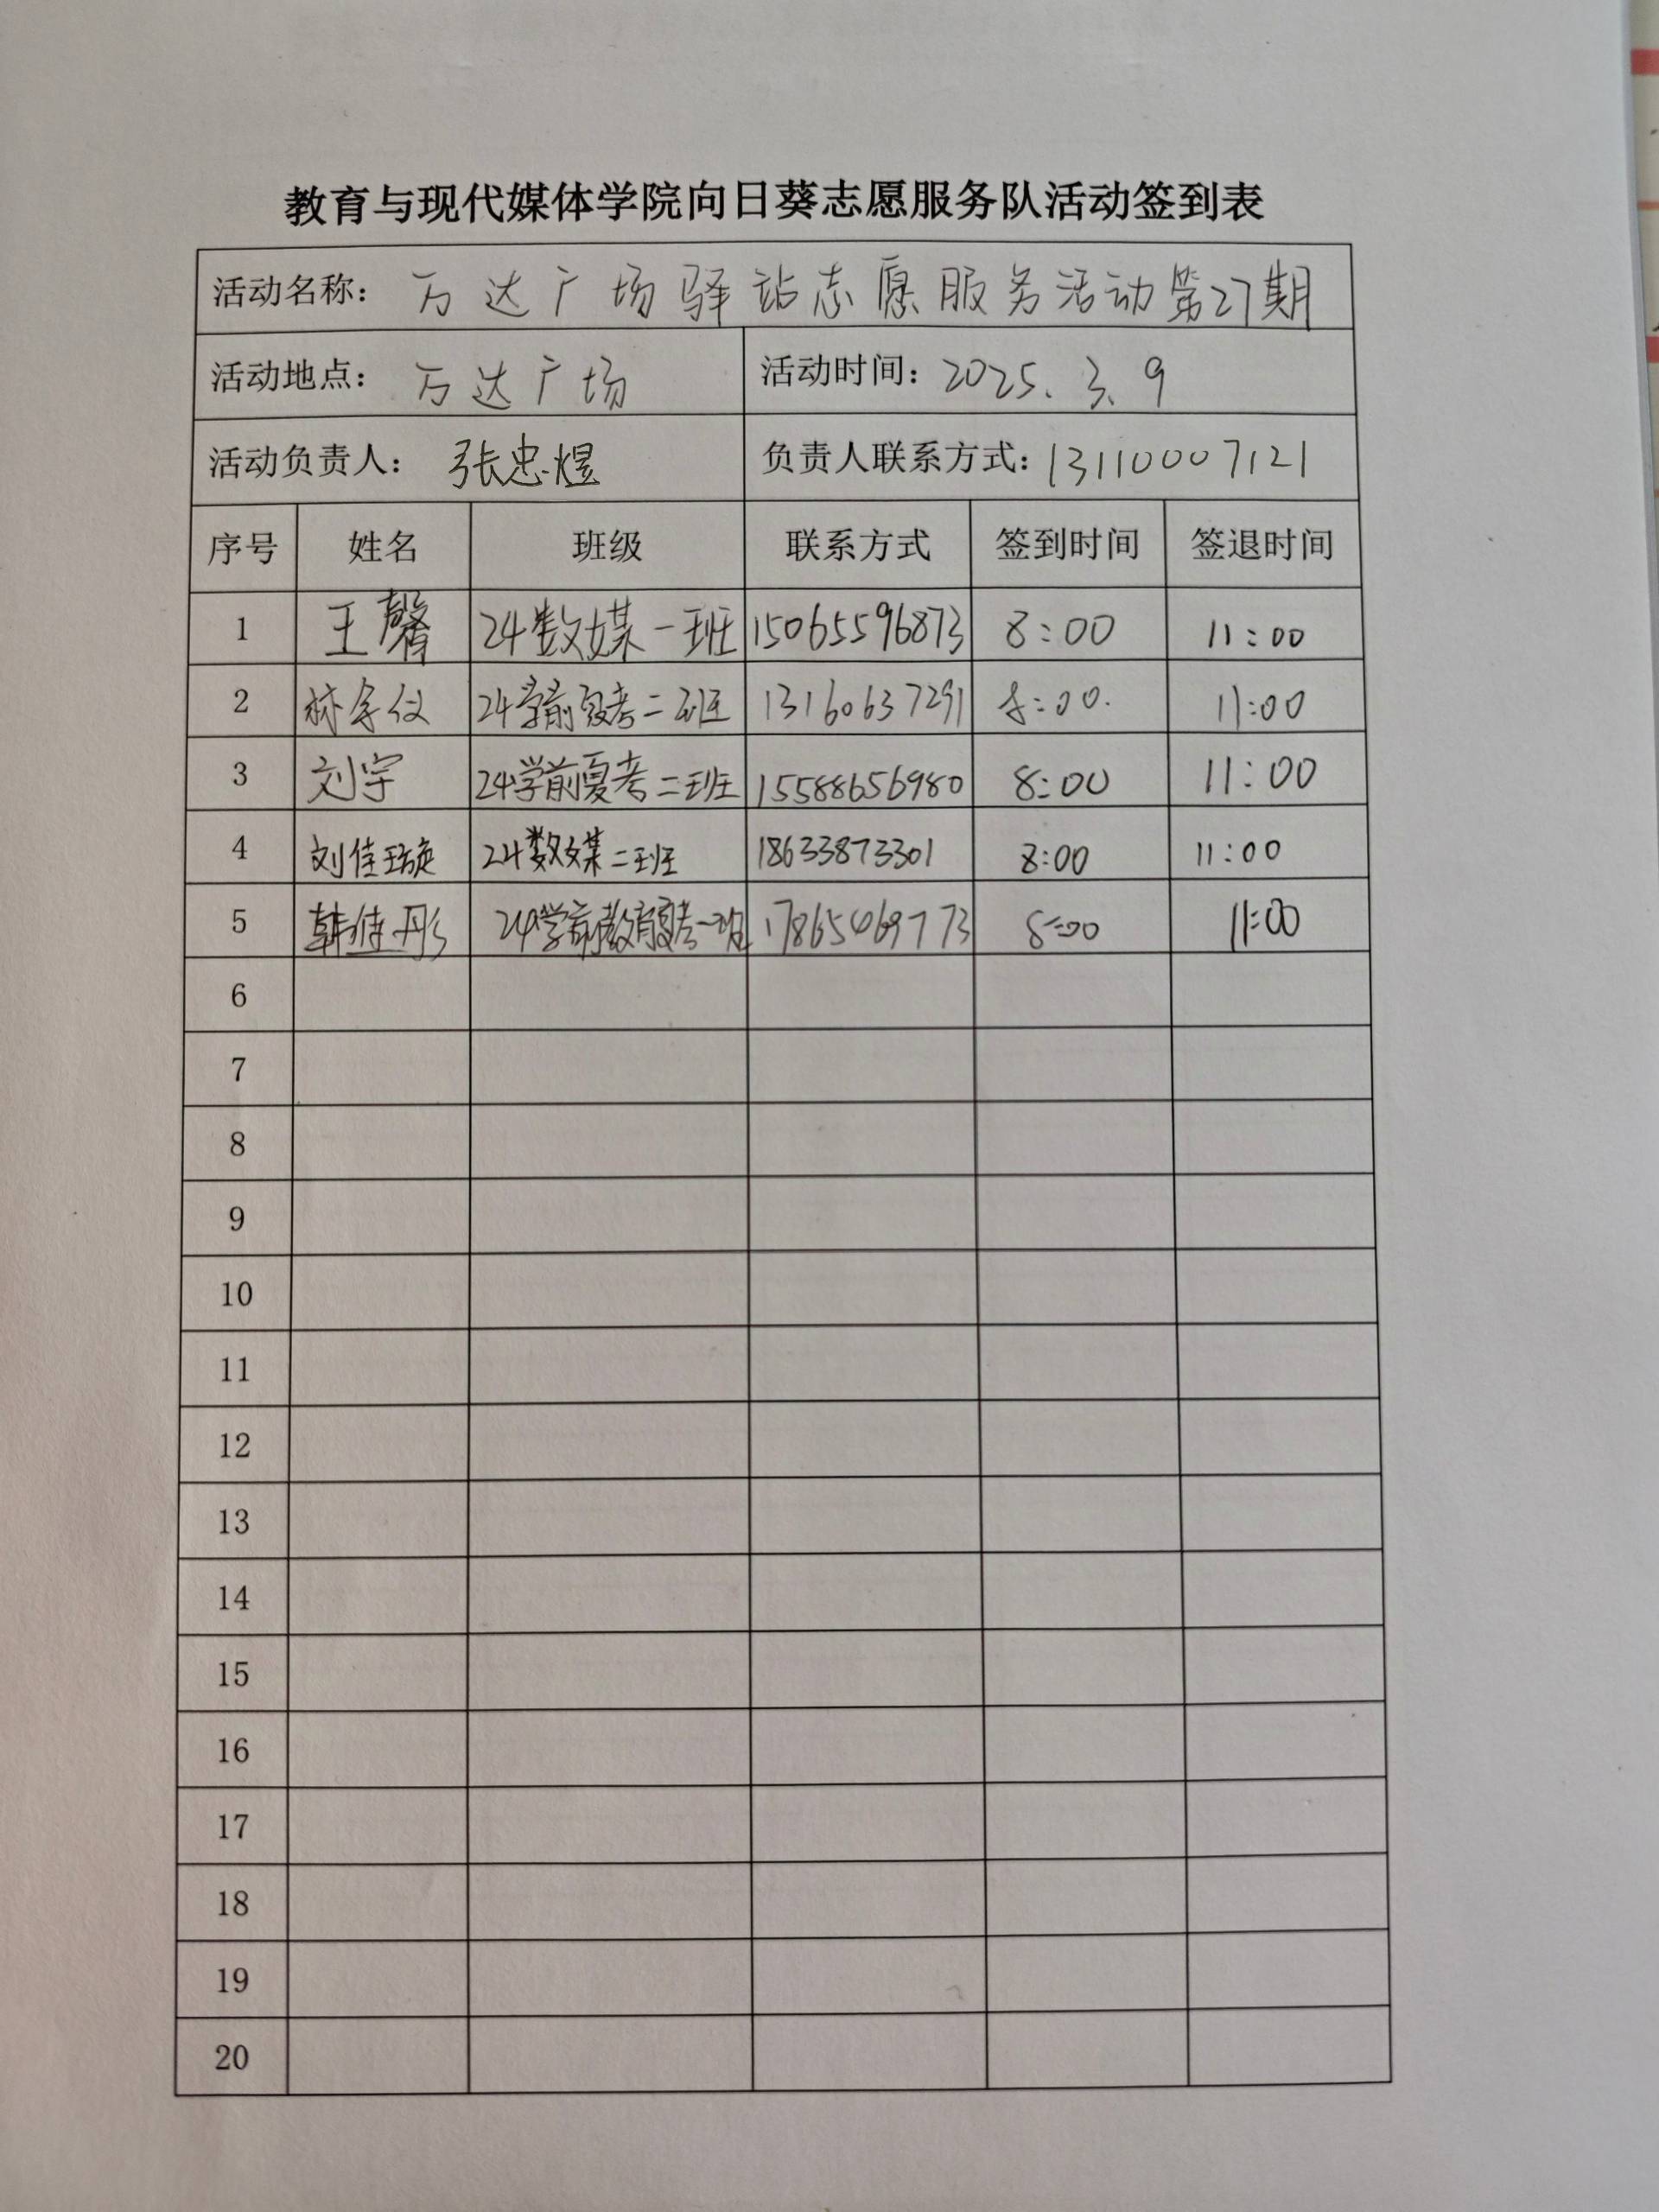 教育与现代媒体学院向日葵志愿服务队活动签到表
活动名称：万达广场驿站志愿服务活动第27期
活动地点：万达广场 活动时间：2025.3.9
活动负责人：张忠煜 负责人联系方式：13110007121
序号 姓名 班级 联系方式 签到时间 签退时间
1 王馨 24数媒一班 15065596873 8:00 11:00
2 林 仪 24学前夏考二班 13160637291 8:00. 11:00
3 刘宇 24学前夏考二班 15588656980 8:00 11:00
4 刘佳璇 24数媒二班 18633873301 8:00 11:00
5 韩佳彤 24学前教育夏考一班 17865469773 8:00 11:00
6
7
8
9
10
11
12
13
14
15
16
17
18
19
20